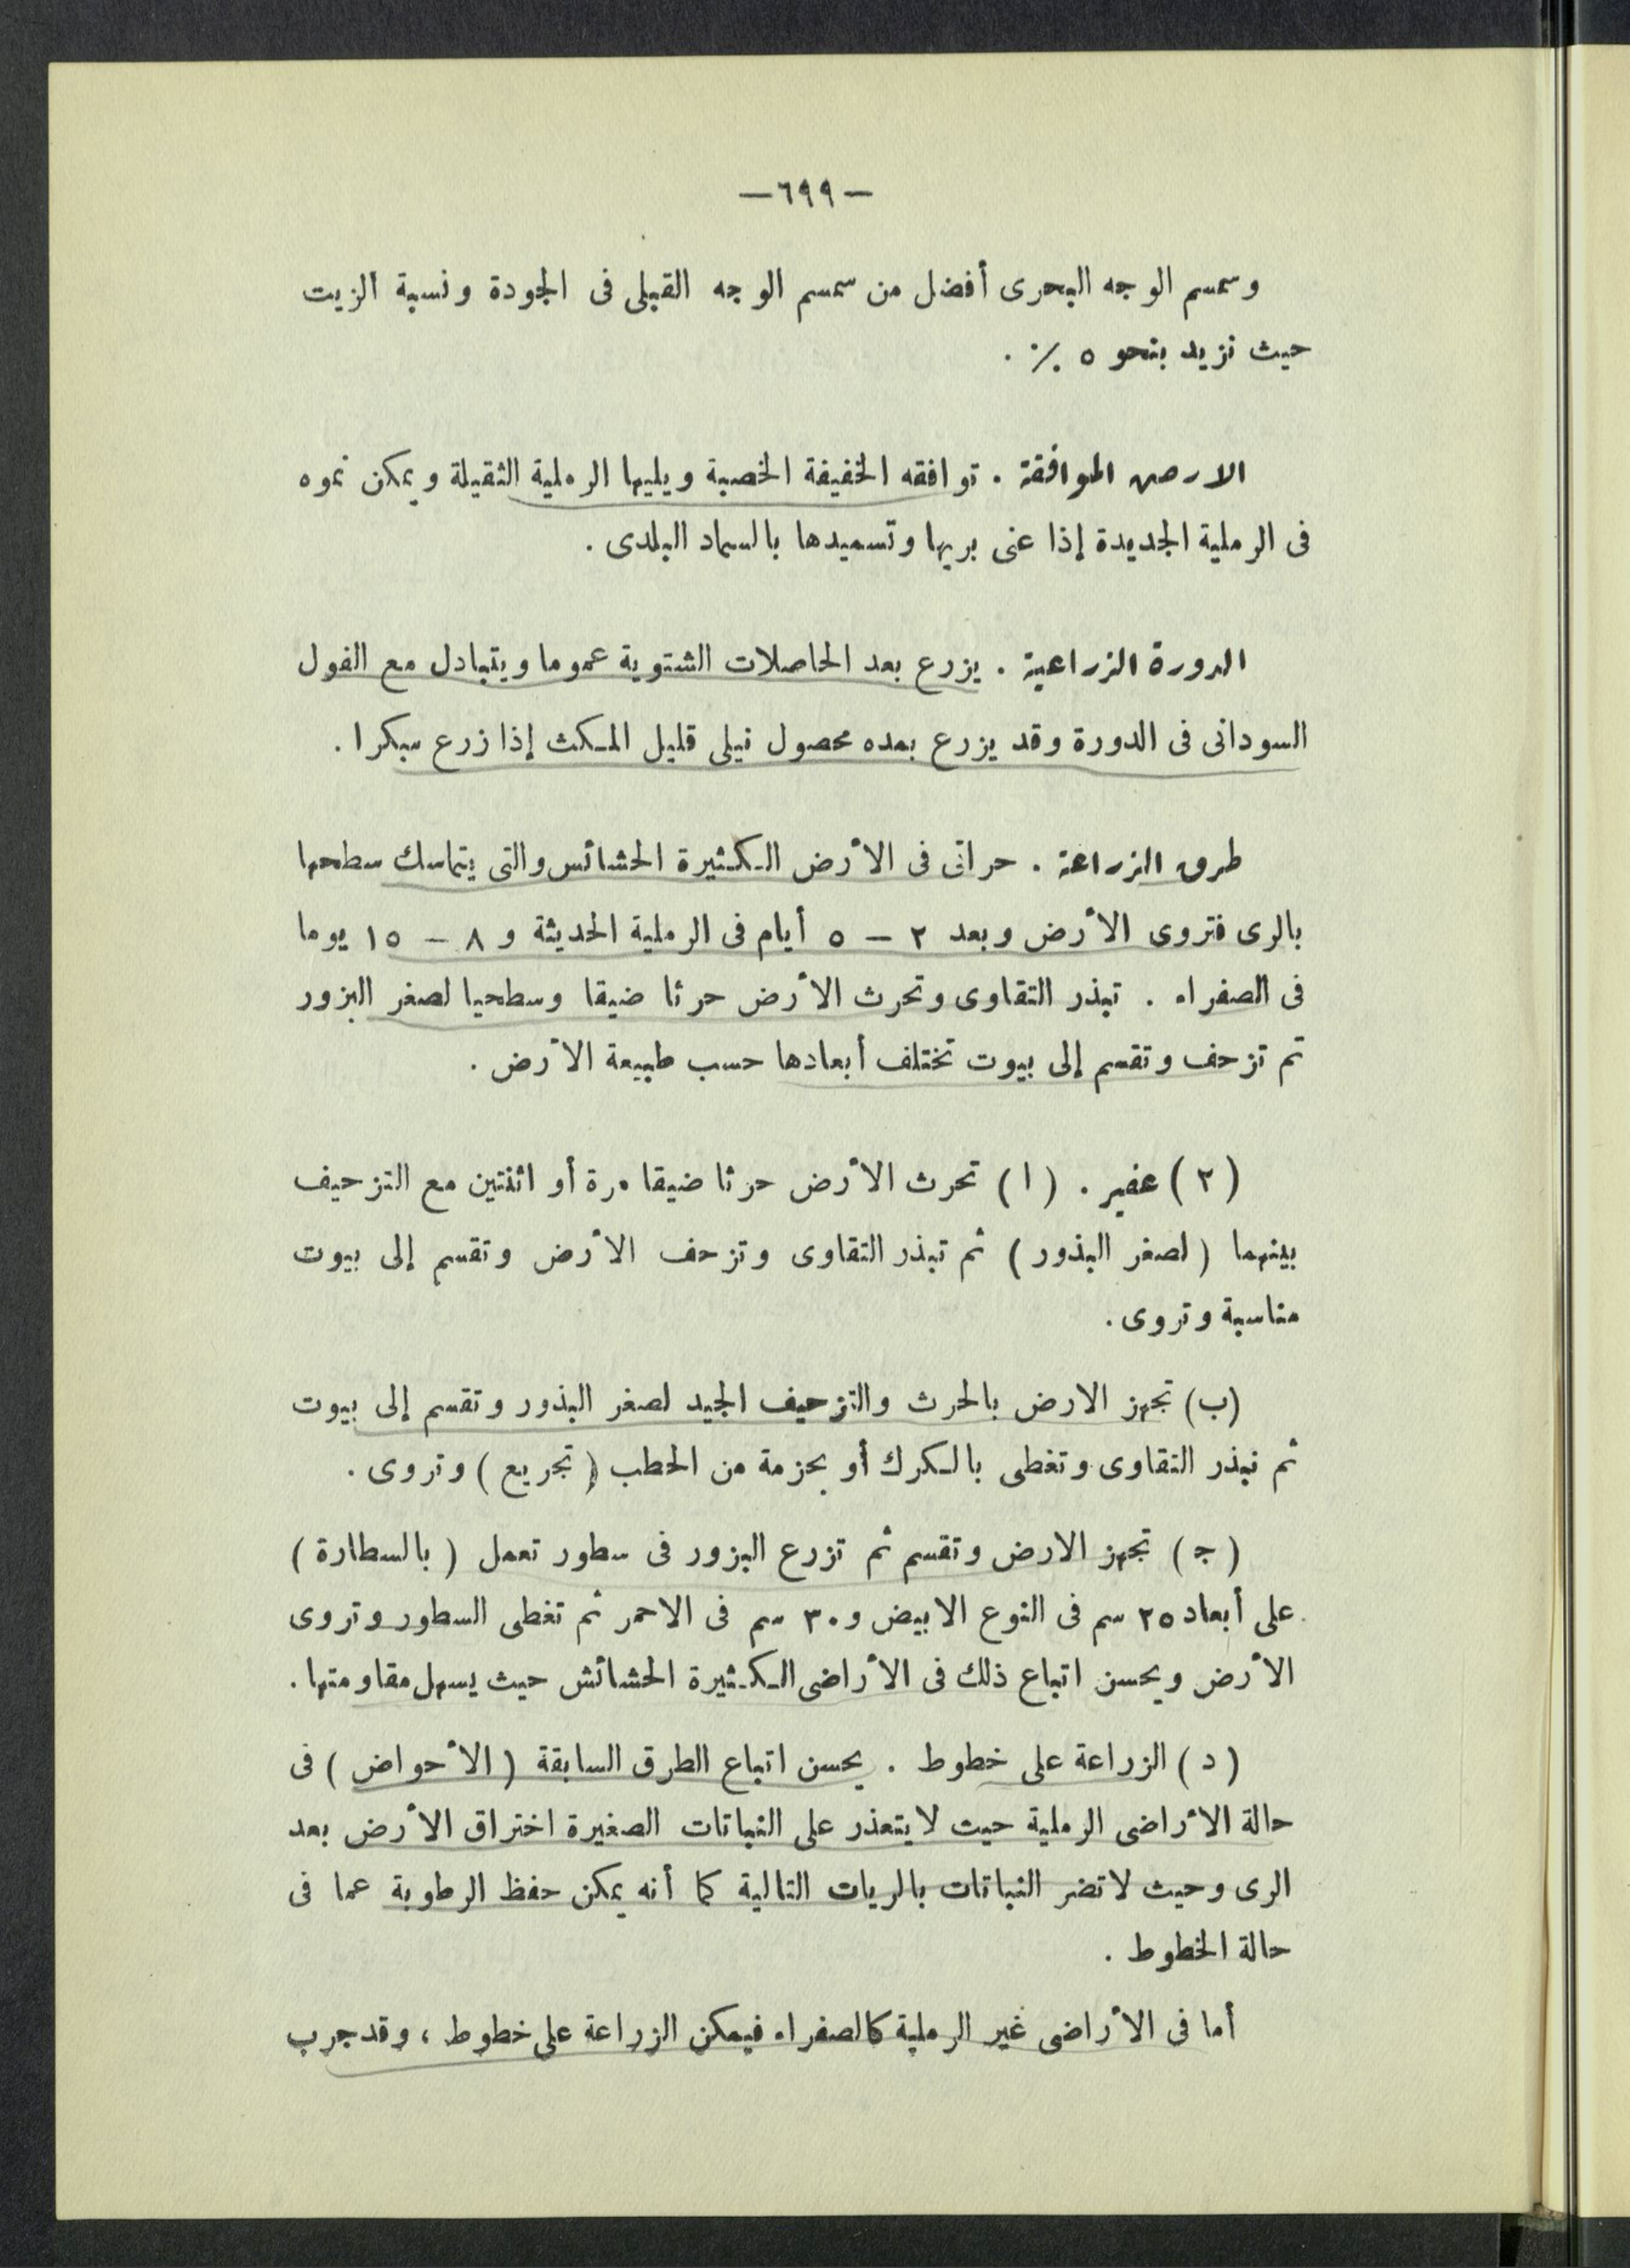 —٦٩٩—
وسمسم الوجه البحرى أفضل من سمسم الوجه القبلى فى الجودة ونسبة الزيت
حيث تزيد بنحو ٥ ٪ .
الارض الموافقة . توافقه الخفيفة الخصبة ويليها الرملية الثقيلة ويمكن نموه
فى الرملية الجديدة إذا عنى بريها وتسميدها بالسماد البلدى .
الدورة الزراعية . يزرع بعد الحاصلات الشتوية عموما ويتبادل مع الفول
السودانى فى الدورة وقد يزرع بعده محصول نيلى قليل المكث إذا زرع مبكرا .
طرق الزراعة . حراثى فى الأرض الكثيرة الحشائش والتى يتماسك سطحها
بالرى فتروى الأرض وبعد ٢ – ٥ أيام فى الرملية الحديثة و ٨ – ١٥ يوما
فى الصفراء . تبذر التقاوى وتحرث الأرض حرثا ضيقا وسطحيا لصغر البزور
تم تزحف وتقسم إلى بيوت تختلف أبعادها حسب طبيعة الأرض .
(٢) عفير . (ا) تحرث الأرض حرثا ضيقا مرة أو اثنتين مع التزحيف
بينهما (لصغر البذور) ثم تبذر التقاوى وتزحف الأرض وتقسم إلى بيوت
مناسبة وتروى .
(ب) تجهز الارض بالحرث والتزحيف الجيد لصغر البذور وتقسم إلى بيوت
ثم تبذر التقاوى وتغطى بالكرك أو بحزمة من الحطب (تجريع) وتروى .
(ج) تجهز الارض وتقسم ثم تزرع البزور فى سطور تعمل (بالسطارة)
على أبعاد ٢٥ سم فى النوع الابيض و ٣٠ سم فى الاحمر ثم تغطى السطور وتروى
الأرض ويحسن اتباع ذلك فى الأراضى الكثيرة الحشائش حيث يسهل مقاومتها .
(د) الزراعة على خطوط . يحسن اتباع الطرق السابقة (الأحواض) فى
حالة الأراضى الرملية حيث لا يتعذر على النباتات الصغيرة اختراق الأرض بعد
الرى وحيث لا تضر النباتات بالريات التالية كما أنه يمكن حفظ الرطوبة عما فى
حالة الخطوط .
أما فى الأراضى غير الرملية كالصفراء فيمكن الزراعة على خطوط ، وقد جرب